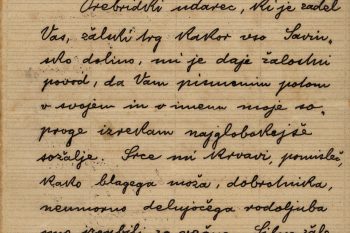 udarec, ki je zadel
Vas, žalski trg kakor vso Savin-
sko dolino, mi je daje žalostni
povod, da Vam pismenim potom
v svojem in v imenu moje so-
proge izrekam najglobokejše
sožalje. Srce mi krvavi, pomisleč,
kako blagega moža, dobrotnika,
neumorno delujočega rodoljuba
smo izgubili za